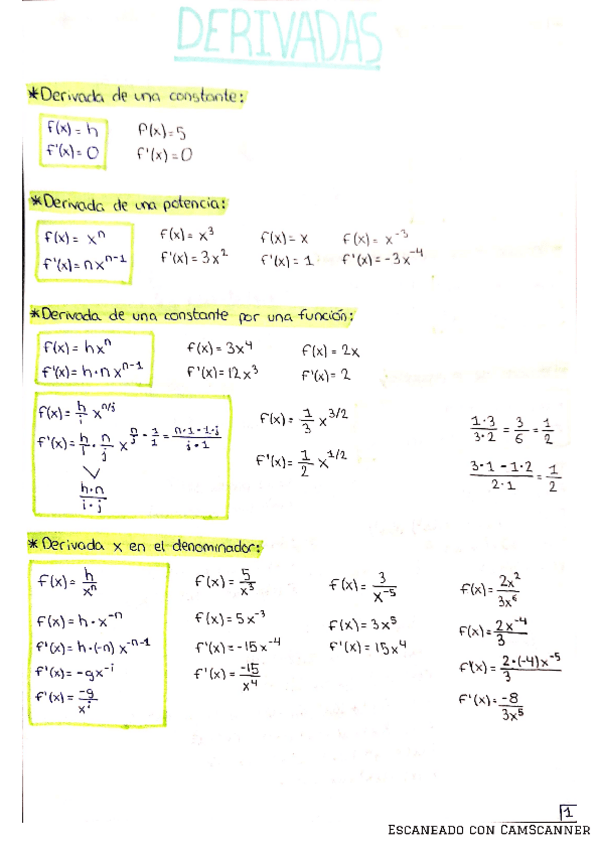 DERIVADAS
*Derivada de una constante:
f(x) = h
f'(x) = 0
f(x) = 5
f'(x) = 0
*Derivada de una potencia:
f(x) = xⁿ
f'(x) = nxⁿ⁻¹
f(x) = x³
f'(x) = 3x²
f(x) = x
f'(x) = 1
f(x) = x⁻³
f'(x) = -3x⁻⁴
*Derivada de una constante por una función:
f(x) = hxⁿ
f'(x) = h·nxⁿ⁻¹
f(x) = 3x⁴
f'(x) = 12x³
f(x) = 2x
f'(x) = 2
f(x) = h/i x^(n/j)
f'(x) = h/i · n/j x^(n/j - 1/1) = (n·1-1·j)/(j·1)
(h·n)/(i·j)
f(x) = 1/3 x^(3/2)
f'(x) = 1/2 x^(1/2)
(1·3)/(3·2) = 3/6 = 1/2
(3·1-1·2)/(2·1) = 1/2
*Derivada x en el denominador:
f(x) = h/xⁿ
f(x) = h·x⁻ⁿ
f'(x) = h·(-n)x⁻ⁿ⁻¹
f'(x) = -gx⁻ⁱ
f'(x) = -g/xⁱ
f(x) = 5/x³
f(x) = 5x⁻³
f'(x) = -15x⁻⁴
f'(x) = -15/x⁴
f(x) = 3/x⁻⁵
f(x) = 3x⁵
f'(x) = 15x⁴
f(x) = 2x²/3x⁶
f(x) = 2x⁻⁴/3
f'(x) = 2·(-4)x⁻⁵/3
f'(x) = -8/3x⁵
1
ESCANEADO CON CAMSCANNER